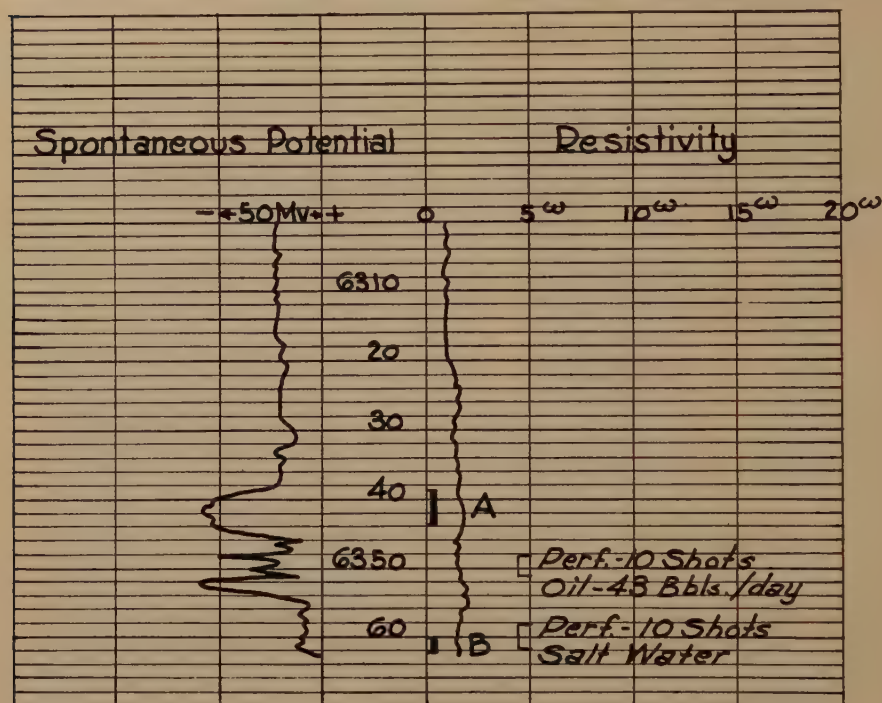 Spontaneous Potential Resistivity
-+50Mv++ 0 5ω 10ω 15ω 20ω
6310
20
30
40 A
6350 Perf.-10 Shots
Oil-43 Bbls./day
60 Perf.-10 Shots
B Salt Water